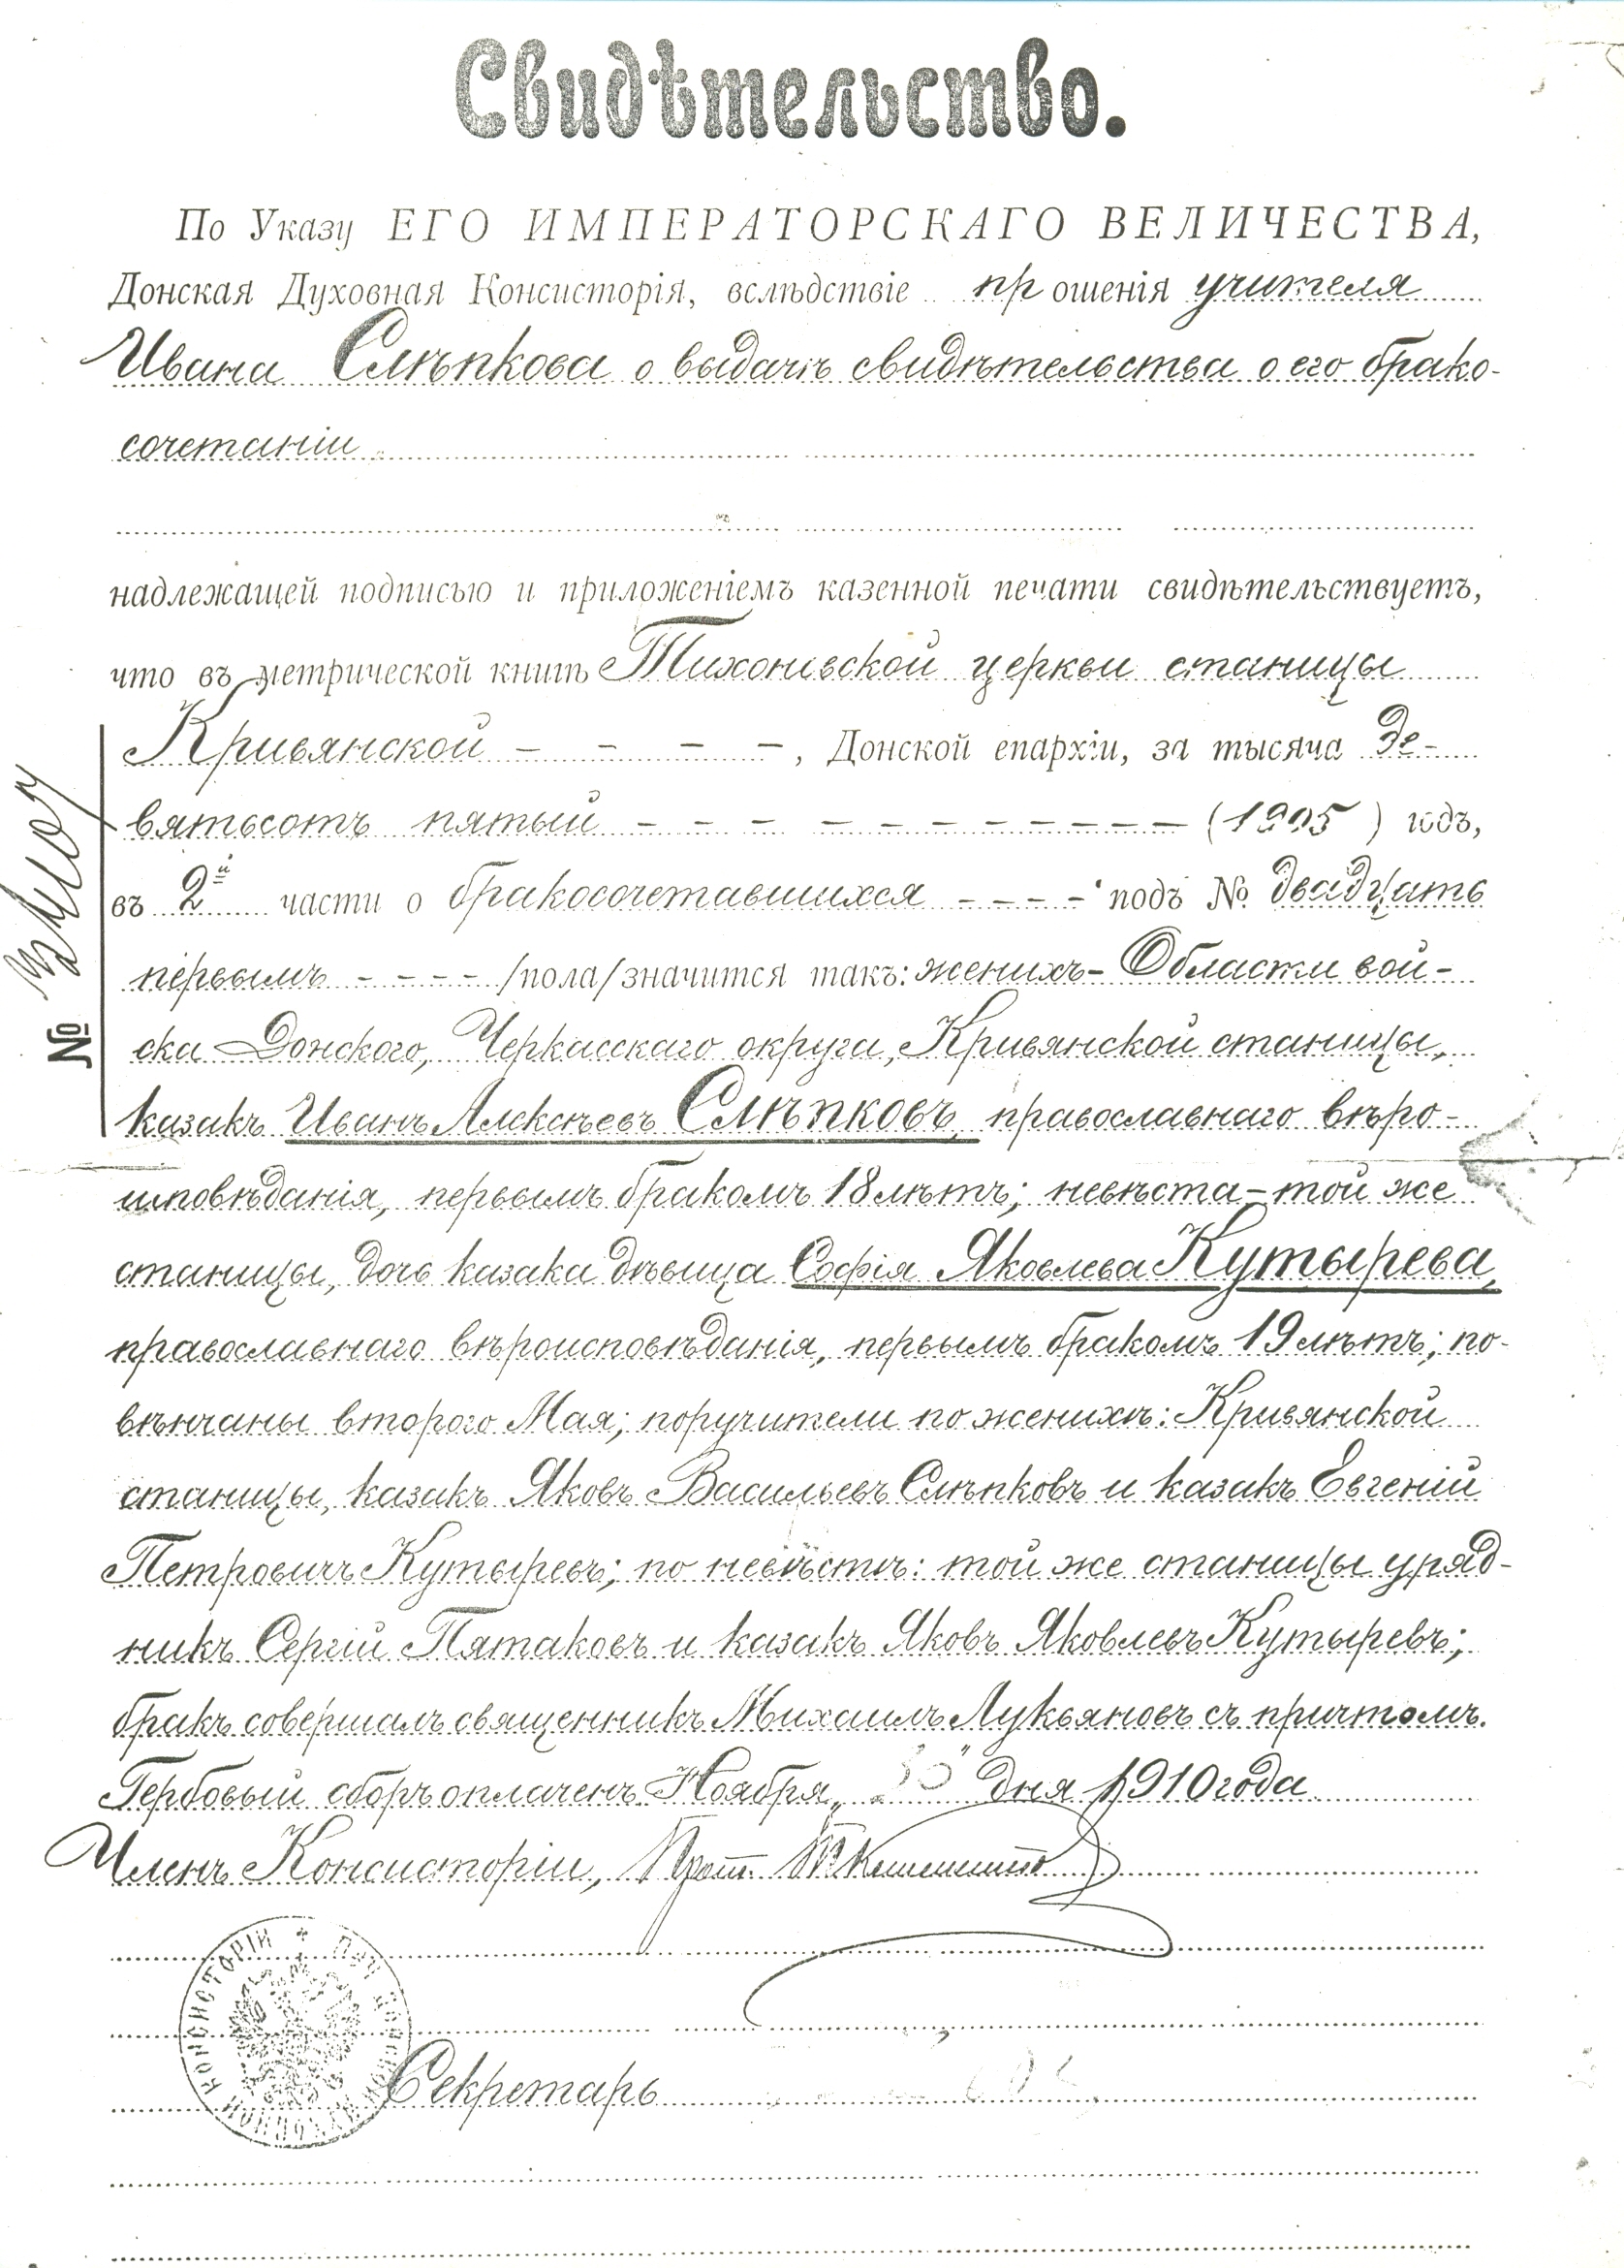 Свидѣтельство.
По Указу ЕГО ИМПЕРАТОРСКАГО ВЕЛИЧЕСТВА,
Донская Духовная Консисторія, вслѣдствіе прошенія учителя
Ивана Слѣпкова о выдачѣ свидѣтельства о его брако-
сочетаніи
надлежащей подписью и приложеніемъ казенной печати свидѣтельствуетъ,
что въ метрической книгѣ Тихоновской церкви станицы
Кривянской - - - -, Донской епархіи, за тысяча де-
вятьсотъ пятый - - - - - - - - - - - (1905) годъ,
въ 2й части о бракосочетавшихся - - - - подъ № двадцать
первымъ - - - - /пола/ значится такъ: женихъ - Области вой-
ска Донского, Черкасскаго округа, Кривянской станицы,
казакъ Иванъ Алексѣевъ Слѣпковъ, православнаго вѣро-
исповѣданія, первымъ бракомъ 18 лѣтъ; невѣста - той же
станицы, дочь казака дѣвица Софія Яковлева Кутырева,
православнаго вѣроисповѣданія, первымъ бракомъ 19 лѣтъ; по-
вѣнчаны второго Мая; поручители по женихѣ: Кривянской
станицы, казакъ Яковъ Васильевъ Слѣпковъ и казакъ Евгеній
Петровичъ Кутыревъ; по невѣстѣ: той же станицы уряд-
никъ Сергій Пятаковъ и казакъ Яковъ Яковлевъ Кутыревъ;
бракъ совершалъ священникъ Михаилъ Лукьяновъ съ причтомъ.
Гербовый сборъ оплаченъ. Ноября „30" дня 1910 года
Членъ Консисторіи, Прот.
Секретарь
№
ПЕЧ. ДОНСКОЙ ДУХОВНОЙ КОНСИСТОРІИ